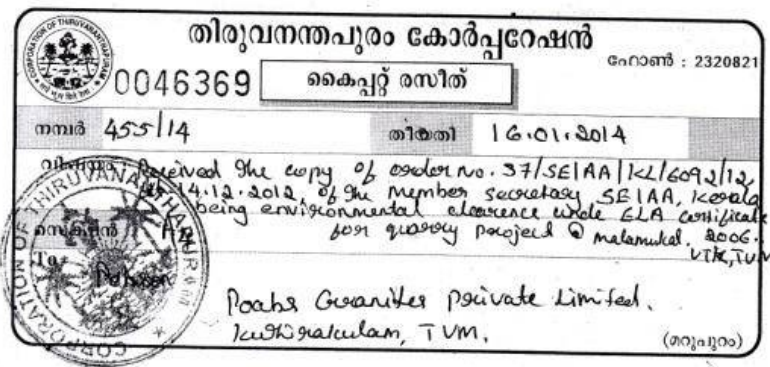 തിരുവനന്തപുരം കോർപ്പറേഷൻ
ഫോൺ : 2320821
0046369 കൈപ്പറ്റ് രസീത്
നമ്പർ 455/14 തീയതി 16.01.2014
വിഷയം : Received the copy of order no. 37/SEIAA/KL/6092/12,
14.12.2012, of the member secretary SEIAA, Kerala
being environmental clearence unde EIA certificate
സെക്ഷൻ for quarry project @ malamukal, 2006.
VTK, TVM
To
Poabs Granites private Limited.
Kuthirakulam, TVM.
(മറുപുറം)
CORPORATION OF THIRUVANANTHAPURAM